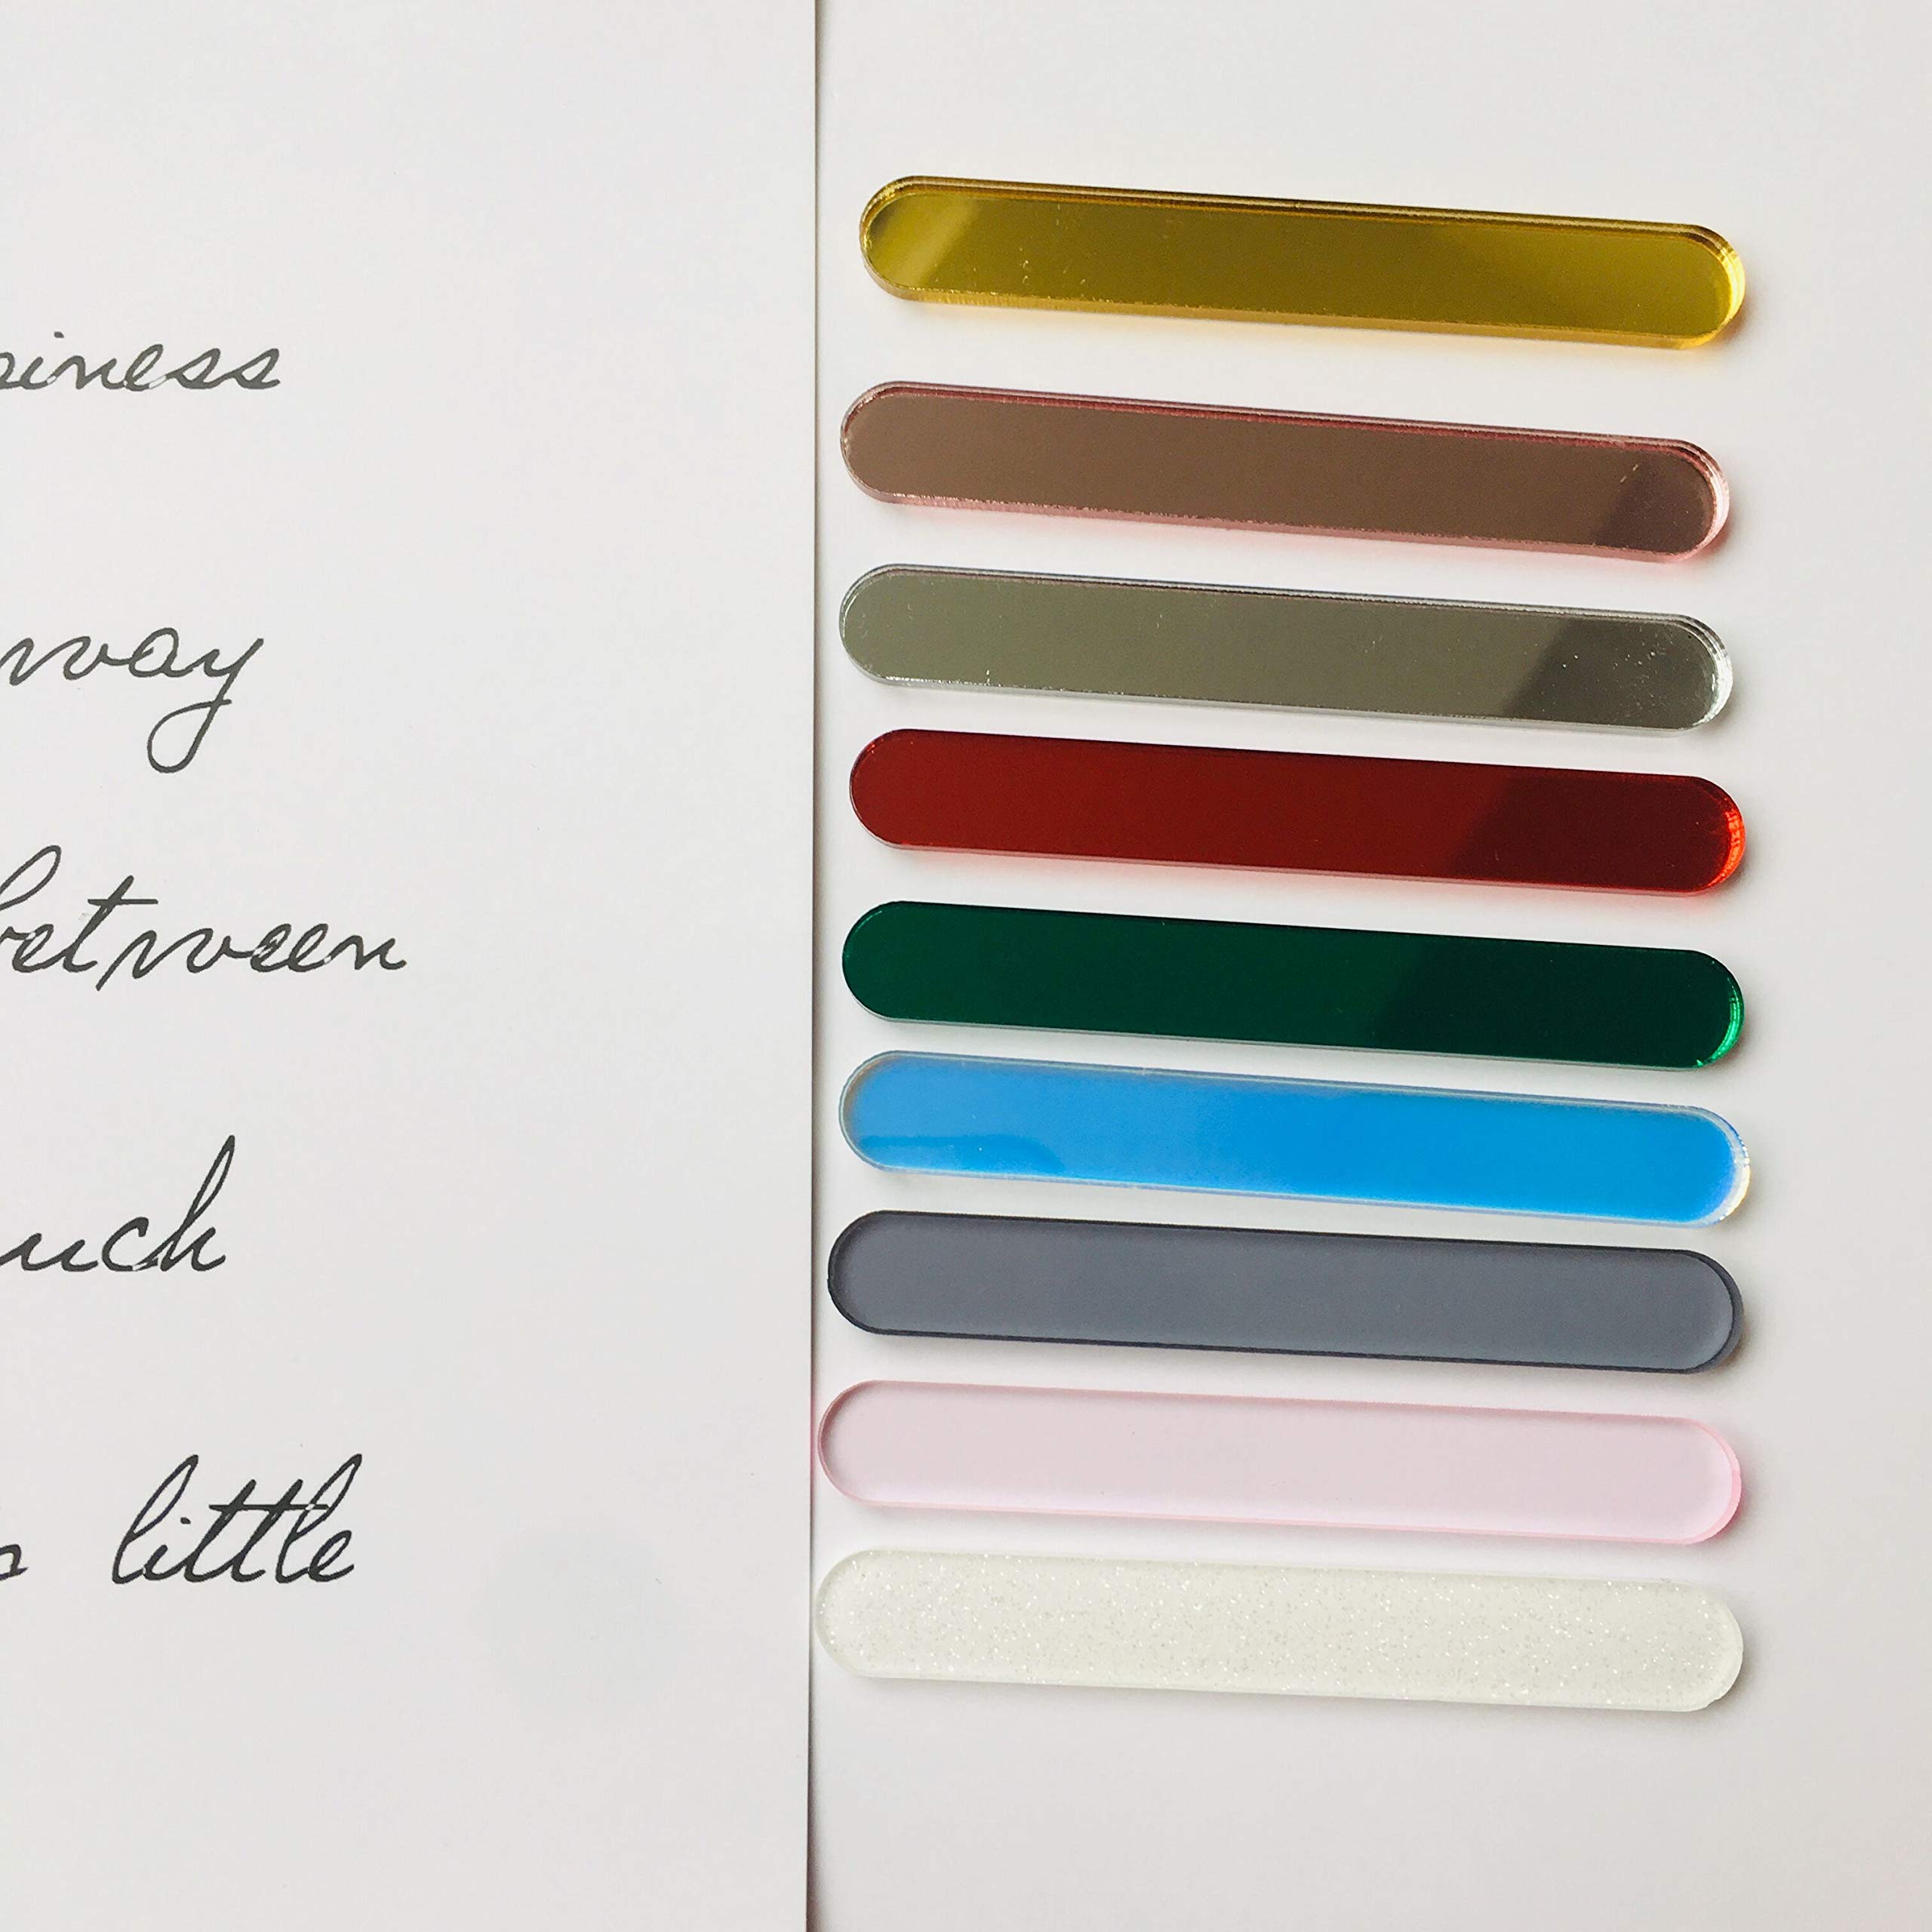 siness
way
between
uch
little